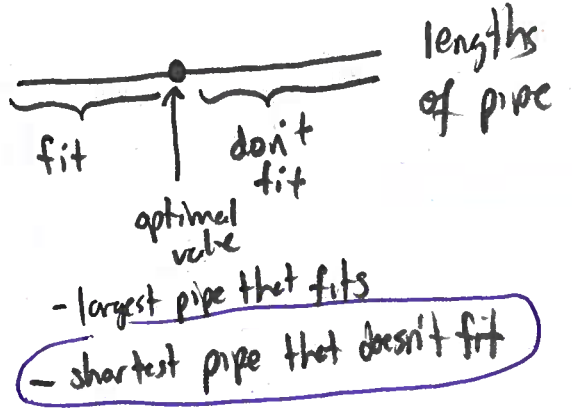 lengths
of pipe
fit
don't
fit
optimal
value
- largest pipe that fits
- shortest pipe that doesn't fit